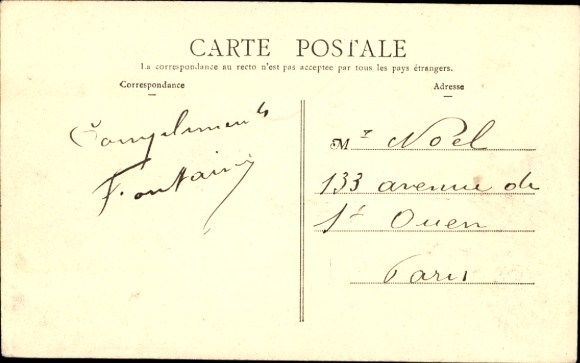 CARTE POSTALE
La correspondance au recto n'est pas acceptee par tous les pays étrangers.
Correspondance
Adresse
Compliments
Fontaine
Mr Noël
133 avenue de
St Ouen
Paris